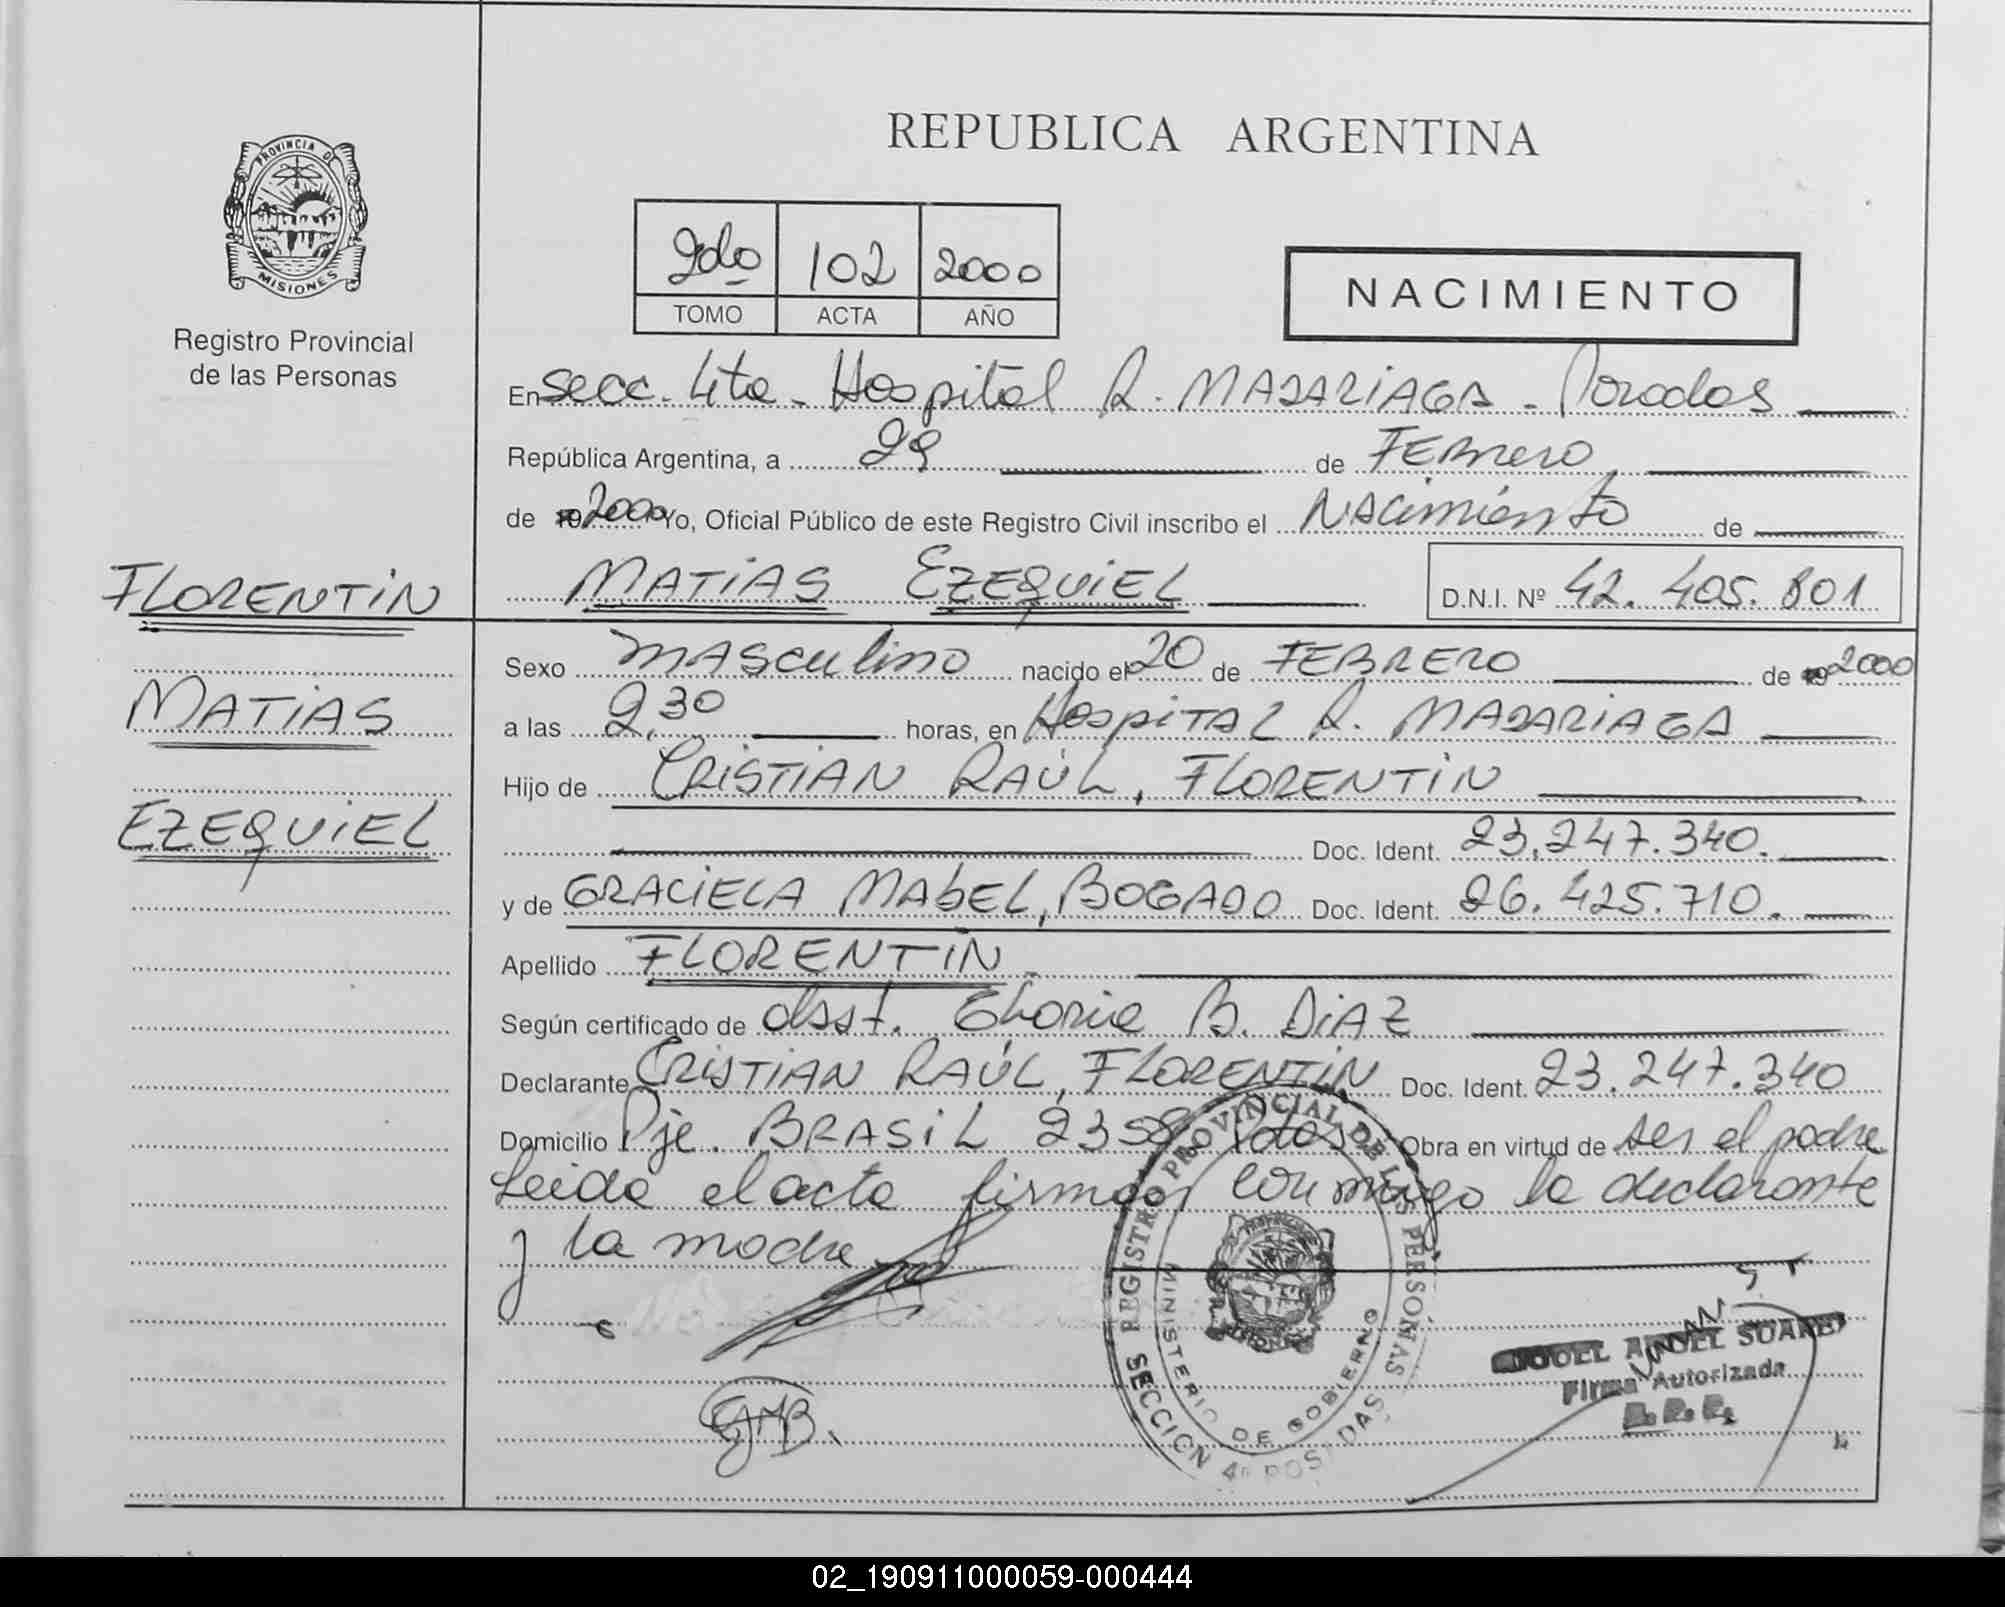 REPUBLICA ARGENTINA
PROVINCIA DE
MISIONES
Registro Provincial
de las Personas
2do 102 2000
TOMO ACTA AÑO
NACIMIENTO
En Secc. 4ta - Hospital R. MADARIAGA - Posadas
República Argentina, a 29 de FEBrero
de 19 2000 Yo, Oficial Público de este Registro Civil inscribo el NAcimiento de
MATIAS EZEQUIEL D.N.I. Nº 42.405.801
FLORENTIN
MATIAS
EZEQUIEL
Sexo MASculino nacido el 20 de FEBRERO de 19 2000
a las 2,30 horas, en HospiTAL R. MADARIAGA
Hijo de CRISTIAN RAÚL, FLORENTIN
Doc. Ident. 23.247.340.
y de GRACIELA MAbEL, BOGADO Doc. Ident. 26.425.710.
Apellido FLORENTIN
Según certificado de obst. B. DIAZ
Declarante CRISTIAN RAÚL, FLORENTIN Doc. Ident. 23.247.340
Domicilio Pje. BRASIL 2358 Pdas Obra en virtud de ser el padre
Leida el acta firman conmigo la declarante
y la madre
REGISTRO PROVINCIAL DE LAS PERSONAS
MINISTERIO DE GOBIERNO
SECCION 4a POSADAS
GMB.
MIGUEL ANGEL SUAREZ
Firma Autorizada
02_190911000059-000444